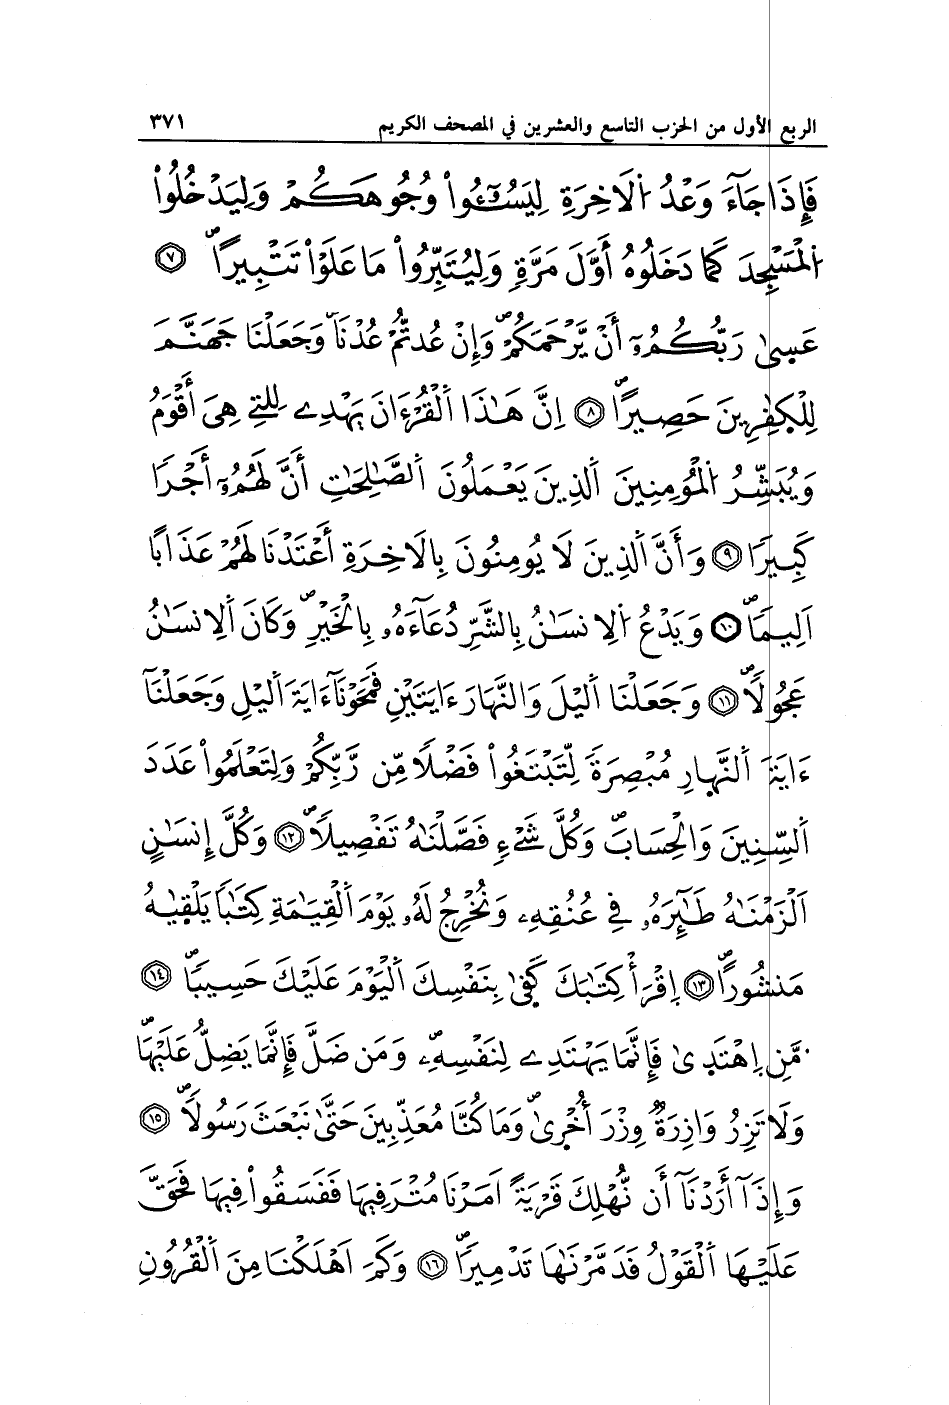 الربع الأول من الحزب التاسع والعشرين في المصحف الكريم ٣٧١
فَإِذَا جَآءَ وَعْدُ اُ۬لَاخِرَةِ لِيَسُـُٔواْ وُجُوهَكُمْ وَلِيَدْخُلُواْ
اُ۬لْمَسْجِدَ كَمَا دَخَلُوهُ أَوَّلَ مَرَّةٖ وَلِيُتَبِّرُواْ مَا عَلَوْاْ تَتْبِيراًۖ ٧
عَسىٰ رَبُّكُمُۥٓ أَنْ يَّرْحَمَكُمْۖ وَإِنْ عُدتُّمْ عُدْنَاۖ وَجَعَلْنَا جَهَنَّمَ
لِلْكٰفِرِينَ حَصِيراًۖ ٨ اِنَّ هَٰذَا اَ۬لْقُرْءَانَ يَهْدِے لِلتِے هِىَ أَقْوَمُ
وَيُبَشِّرُ اُ۬لْمُومِنِينَ اَ۬لذِينَ يَعْمَلُونَ اَ۬لصَّٰلِحَٰتِ أَنَّ لَهُمُۥٓ أَجْراً
كَبِيراً ٩ وَأَنَّ اَ۬لذِينَ لَا يُومِنُونَ بِالَاخِرَةِ أَعْتَدْنَا لَهُمْ عَذَاباً
اَلِيماًۖ ١٠ وَيَدْعُ اُ۬لِانسَٰنُ بِالشَّرِّ دُعَآءَهُۥ بِالْخَيْرِۖ وَكَانَ اَ۬لِانسَٰنُ
عَجُولاًۖ ١١ وَجَعَلْنَا اَ۬ليْلَ وَالنَّهَارَ ءَايَتَيْنِ فَمَحَوْنَآ ءَايَةَ اَ۬ليْلِ وَجَعَلْنَآ
ءَايَةَ اَ۬لنَّهارِ مُبْصِرَةً لِّتَبْتَغُواْ فَضْلاً مِّن رَّبِّكُمْ وَلِتَعْلَمُواْ عَدَدَ
اَ۬لسِّنِينَ وَالْحِسَابَۖ وَكُلَّ شَےْءٖ فَصَّلْنَٰهُ تَفْصِيلاًۖ ١٢ وَكُلَّ إِنسَٰنٍ
اَلْزَمْنَٰهُ طَٰٓئِرَهُۥ فِے عُنُقِهِۦ وَنُخْرِجُ لَهُۥ يَوْمَ اَ۬لْقِيَٰمَةِ كِتَٰباً يَلْقيٰهُ
مَنشُوراًۖ ١٣ اِ۪قْرَأْ كِتَٰبَكَ كَفىٰ بِنَفْسِكَ اَ۬لْيَوْمَ عَلَيْكَ حَسِيباًۖ ١٤
مَّنِ اِ۪هْتَدىٰ فَإِنَّمَا يَهْتَدِے لِنَفْسِهِۦۖ وَمَن ضَلَّ فَإِنَّمَا يَضِلُّ عَلَيْهَاۖ
وَلَا تَزِرُ وَازِرَةٞ وِزْرَ أُخْرىٰۖ وَمَا كُنَّا مُعَذِّبِينَ حَتَّىٰ نَبْعَثَ رَسُولاًۖ ١٥
وَإِذَآ أَرَدْنَآ أَن نُّهْلِكَ قَرْيَةً اَمَرْنَا مُتْرَفِيهَا فَفَسَقُواْ فِيهَا فَحَقَّ
عَلَيْهَا اَ۬لْقَوْلُ فَدَمَّرْنَٰهَا تَدْمِيراًۖ ١٦ وَكَمَ اَهْلَكْنَا مِنَ اَ۬لْقُرُونِ